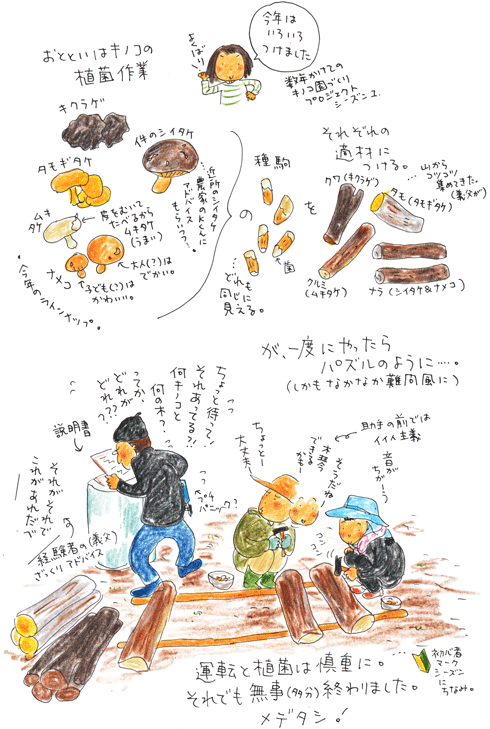 おとといはキノコの
植菌作業
よくばり
今年は
いろいろ
つけました
数年かけての
キノコ園づくり
プロジェクト
シーズン1.
キクラゲ
タモギタケ
件のシイタケ
近所のシイタケ
農家のKくんに
アドバイス
もらいつつ…。
ムキ
タケ
皮をむいて
たべるから
ムキタケ
(うまい)
ナメコ
大人(?)は
でかい。
子ども(?)は
かわいい。
今年のラインナップ。
の
種駒
菌
…どれも
同じに
見える。
を
それぞれの
適材に
つける。
…山から
コツコツ
集めてきた。
(義父が)
クワ(キクラゲ)
タモ(タモギタケ)
クルミ
(ムキタケ)
ナラ(シイタケ&ナメコ)
が、一度にやったら
パズルのように…。
(しかもなかなか難問風に)
ちょっと待って!
それあってる?!
何キノコと
何の木?
ってか、
どれが、
どれ
???
説明書
それがそれで
これがあれだべ
経験者の(義父)
ざっくりアドバイス
プチ
パニック?
ちょっとー
大丈夫?
木琴
できる
かもー
そうだね
音が
ちがーう
助手の前では
イイ人主義
コン
コン
運転と植菌は慎重に。
それでも無事(多分)終わりました。
メデタシ!
…初心者
マーク
シーズン
にちなみ。